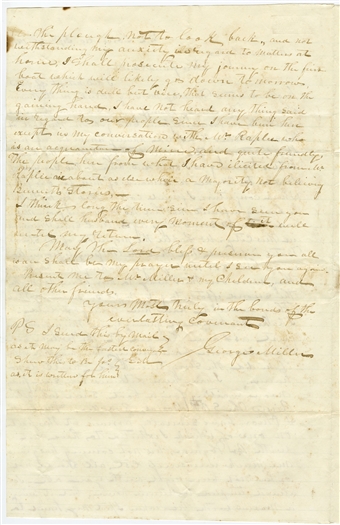 to the plough not to look back, and not
withstanding my anxiety in regard to matters at
home, I shall prosecute my journey on the first
boat which will likely go down to morrow
Every thing is dull but river that seems to be on the
gaining hand. I have not heard any thing said
in regard to our people since I have been here
except in my conversation with Mr Raplee who
is an acquaintance of mine and quite friendly.
The people here from what I have elicited from Mr
Raplee are about as elsewhere a majority not believing
Bennetts Stories.
I think long the time since I have seen you
and shall husband every moment of it until
I see you again.
May the Lord bless & preserve you all
is and shall be my prayer until I see you
Present me to Mrs Miller & my Children, and
all the friends.
Yours Most Truly in the bonds of the
everlasting Covenant
George Miller
PS I send this by mail
as it may be the safest conveyance
Shew this to Br Jos.
as it is written for him